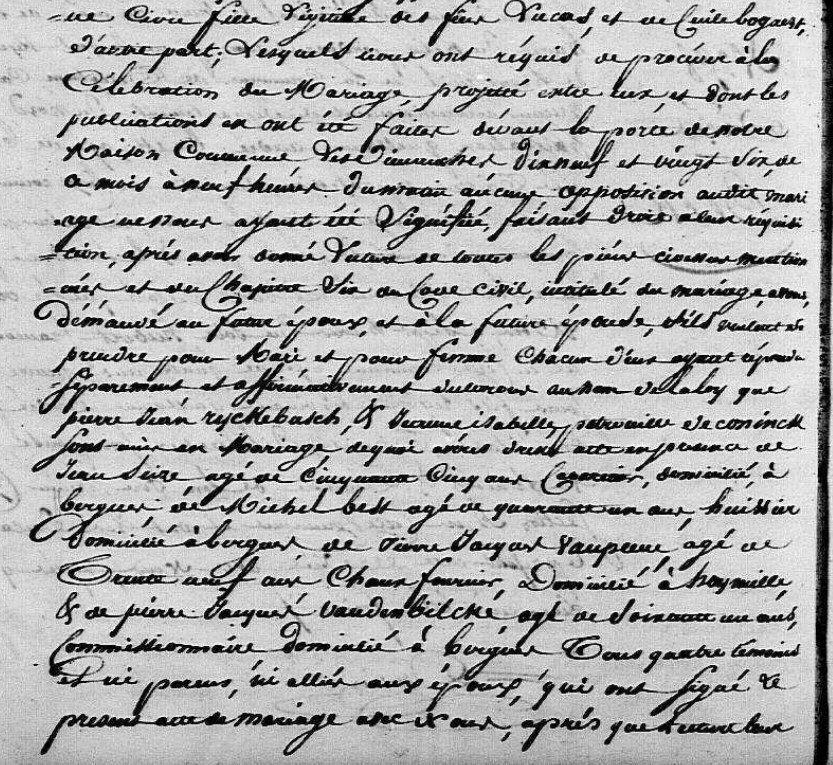 =ue Civie fille Légitime des feus Lucas, et de Cecile bogaert,
d'autre part; Lesquels nous ont réquis de proceder à la
Célébration du Mariage projetté entre eux, et dont les
publications en ont été faites devant la porte de notre
Maison Commune Les Dimanches dixneuf et vingt Six de
ce mois à neuf heures du matin aucune opposition audit mari
=age ne nous ayant été Signifiée, faisant droit a leur réquisi
=tion, aprés avoir donné Lecture de toutes les piéces cidessus mention
=nés et du Chapitre Six du Code Civil, intitulé du mariage, avons
démandé au futur époux, et à la future épouse, s'ils veulent se
prendre pour Mari et pour femme Chacun d'eux ayant répondu
Séparement et affirmativement declarons au nom de la loy que
pierre Jean ryckebusch, & Jeanne isabelle petronille deconinck
sont unis en Mariage dequoi avons dressé acte en presence de
Jean Seize agé de Cinquante Cinq ans Courrier, domicilié, à
bergues de Michel best agé de quarante un ans, huissier
Domicilié à bergues de Pierre Jacques Vanpeene, agé de
Trente neuf ans Chaux fournier, Domicilié à hoymille
& de pierre Jacques Vandenbilcke agé de Soixante un ans,
Commissionnaire domicilié à bergues Tous quatre témoins
et ni parens, ni alliés aux époux, qui ont signé le
present acte de mariage avec Nous, aprés que Lecture leur